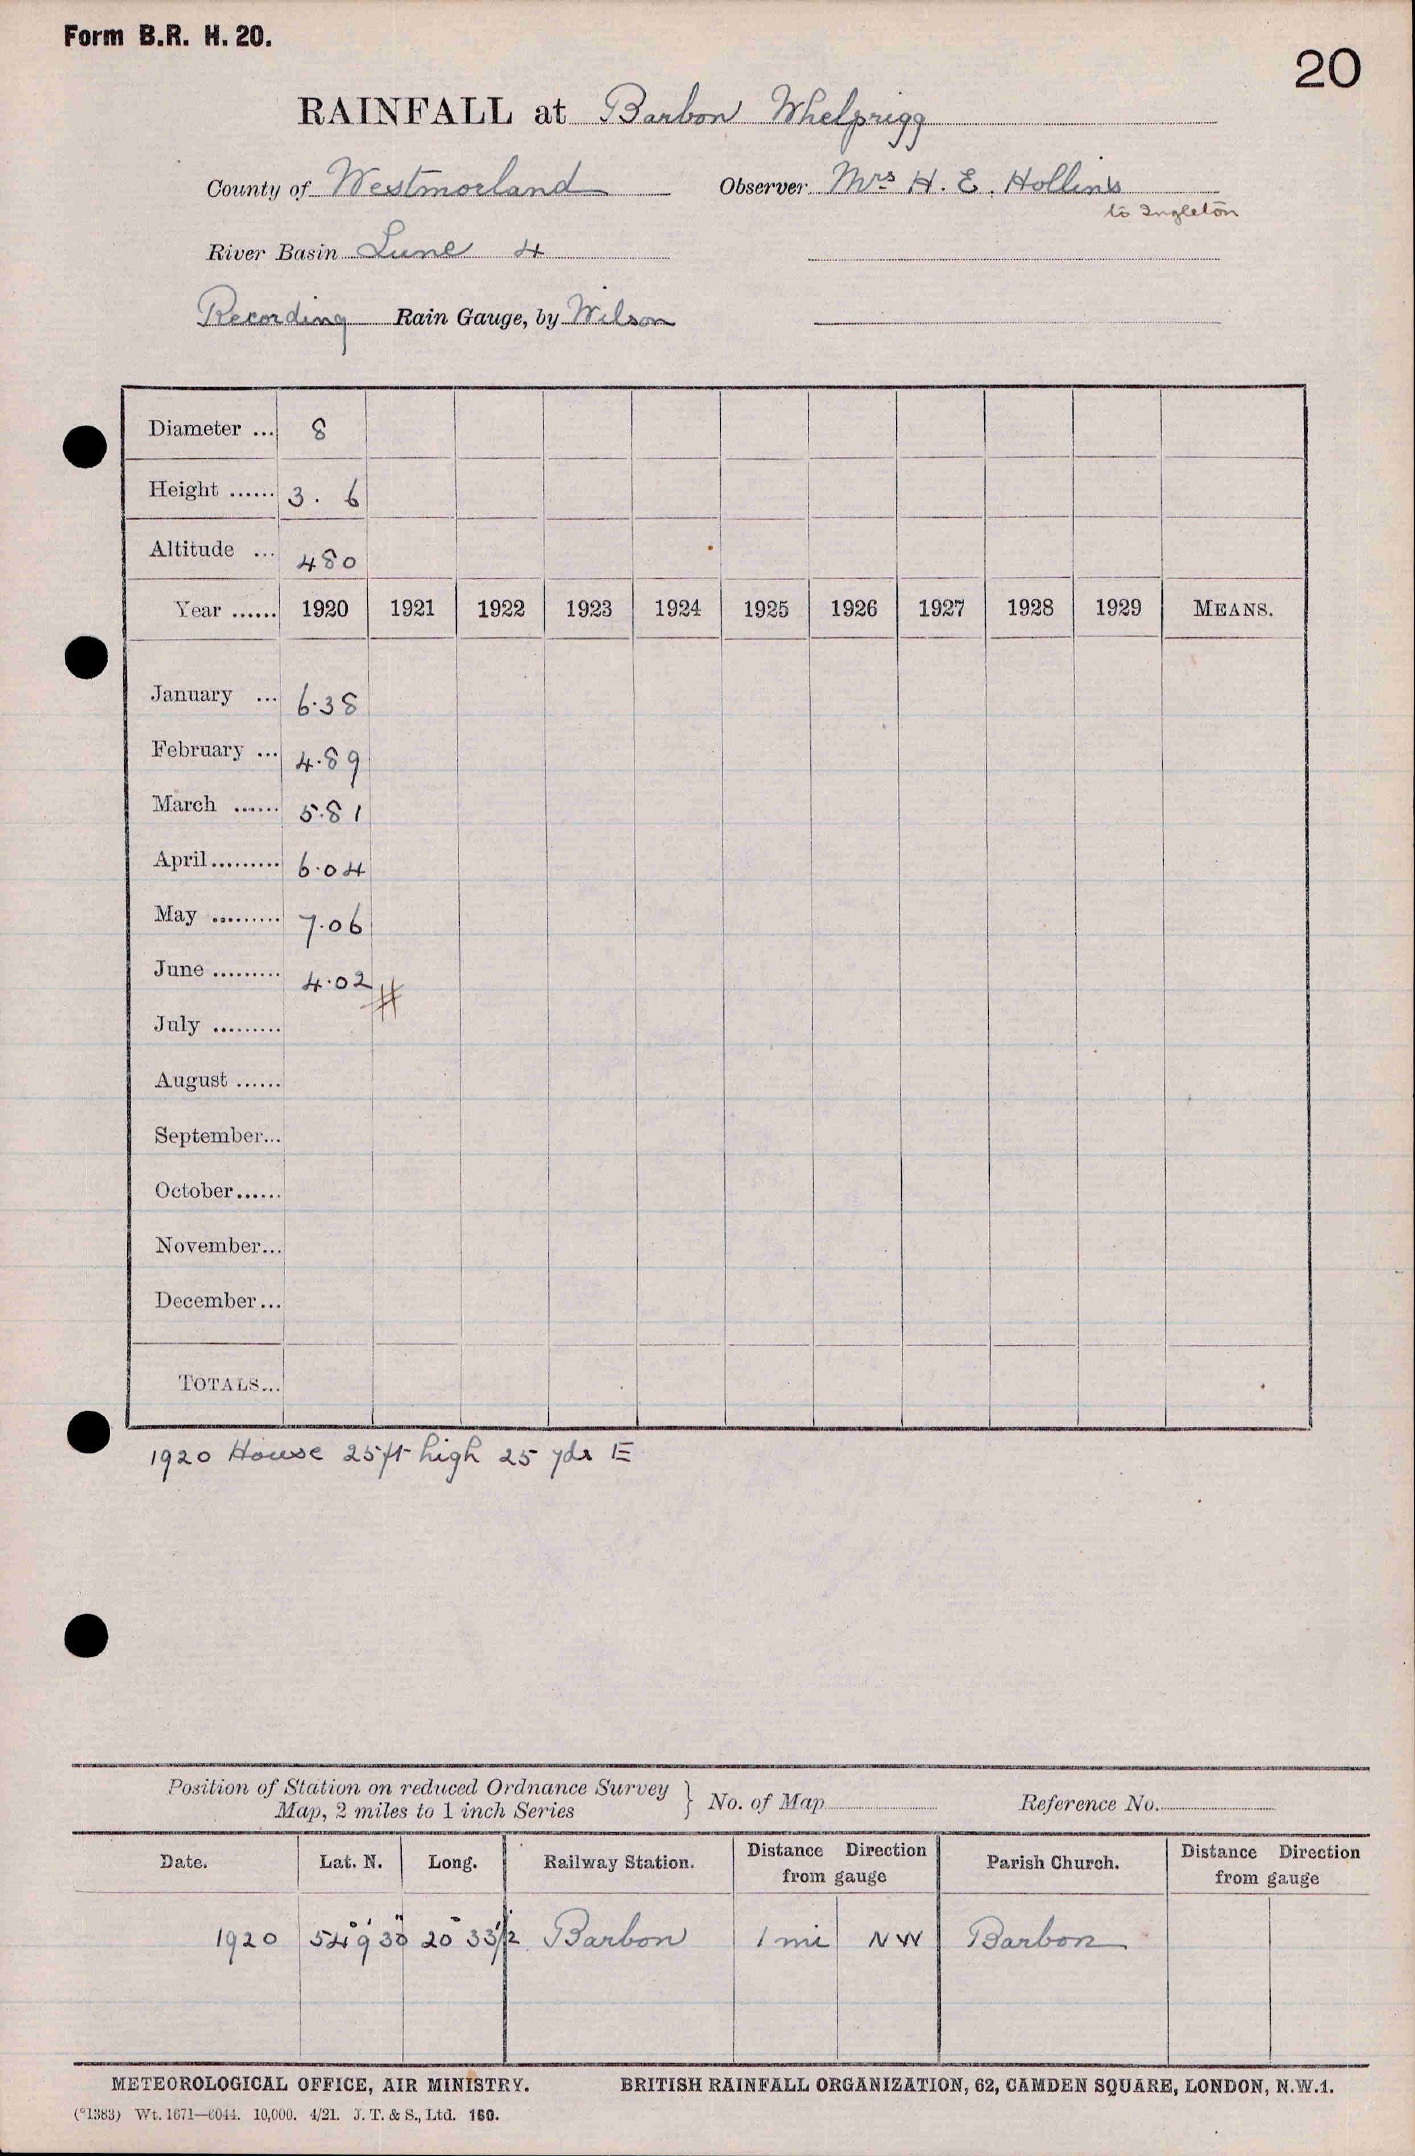 Form B.R. H. 20.
20
RAINFALL at Barbon Whelprigg
County of Westmorland Observer Mrs H. E. Hollins
to Ingleton
River Basin Lune 4
Recording Rain Gauge, by Wilson
Diameter ... 8
Height ...... 3. 6
Altitude ... 480
Year ...... 1920 1921 1922 1923 1924 1925 1926 1927 1928 1929 MEANS.
January ... 6.38
February ... 4.89
March ...... 5.81
April......... 6.04
May ......... 7.06
June ......... 4.02 #
July .........
August ......
September...
October......
November...
December...
TOTALS...
1920 House 25 ft high 25 yds E
Position of Station on reduced Ordnance Survey
Map, 2 miles to 1 inch Series } No. of Map Reference No.
Date. Lat. N. Long. Railway Station. Distance Direction from gauge Parish Church. Distance Direction from gauge
1920 54° 9' 30" 2° 33' 1/2 Barbon 1 mi NW Barbon
METEOROLOGICAL OFFICE, AIR MINISTRY. BRITISH RAINFALL ORGANIZATION, 62, CAMDEN SQUARE, LONDON, N.W.1.
(°1383) Wt. 1671—6044. 10,000. 4/21. J. T. & S., Ltd. 160.